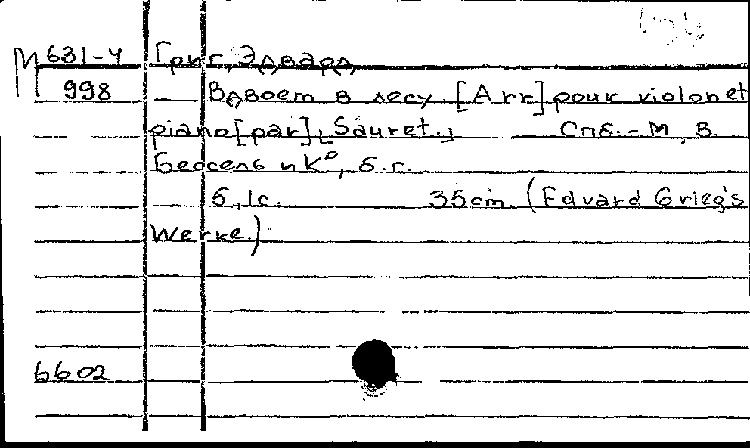 М 631-4 Григ, Эдвард
998 Вдвоем в лесу. [Arr] pour violon et
piano [par] Sauret. Спб. - М, В.
Бессель и К°, б. г.
6, 1с. 35cm. (Edvard Grieg's
Werke.)
6602